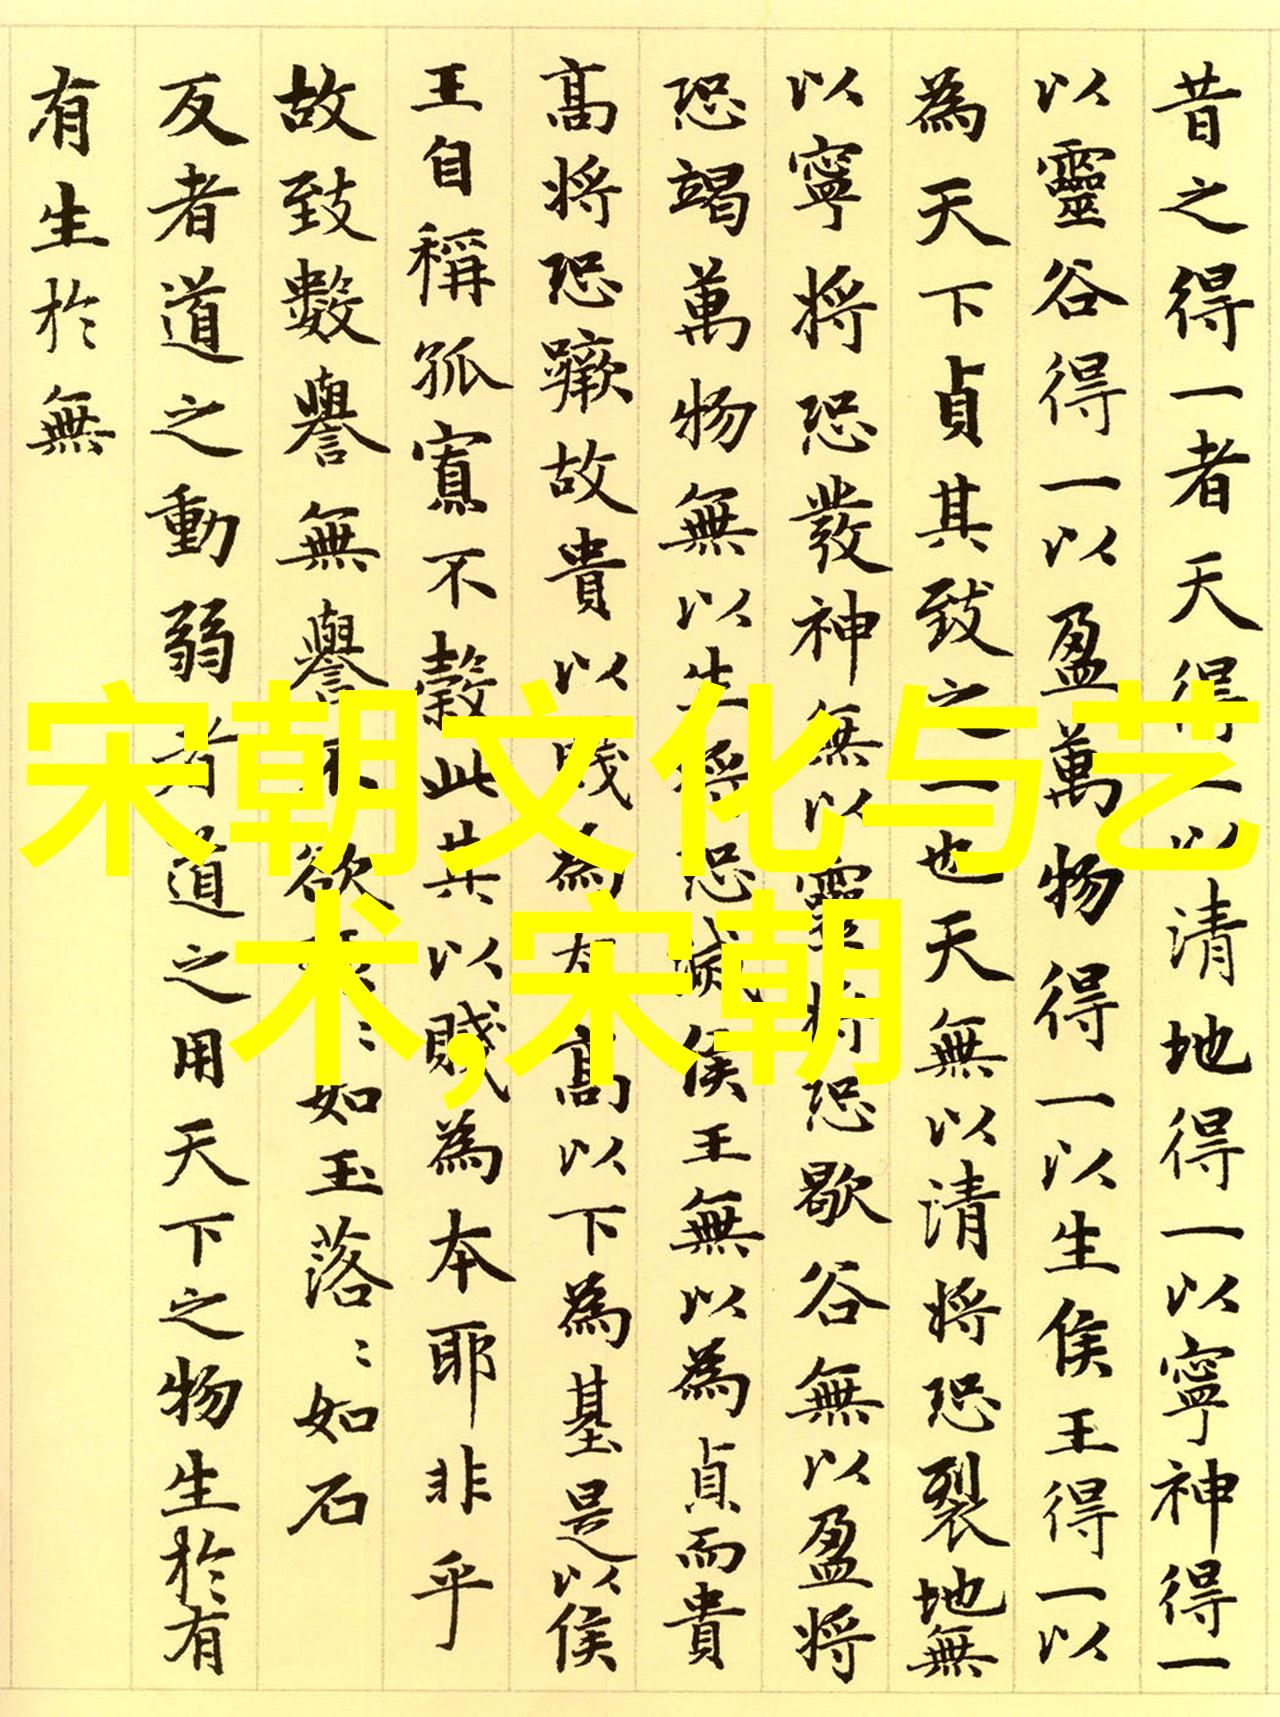 昔之得一者天得一以清地得一以寧神得一
以靈谷得一以盈萬物得一以生侯王得一以
為天下貞其致之一也天無以清將恐裂地無
以寧將恐發神無以靈將恐歇谷無以盈將
恐竭萬物無以生將恐滅侯王無以為貞而貴
高將恐蹶故貴以賤為本高以下為基是以侯
王自稱孤寡不穀此其以賤為本耶非乎
故致數譽無譽不欲如玉落〻如石
反者道之動弱者道之用天下之物生於有
有生於無
宋朝文化与艺
术,宋朝